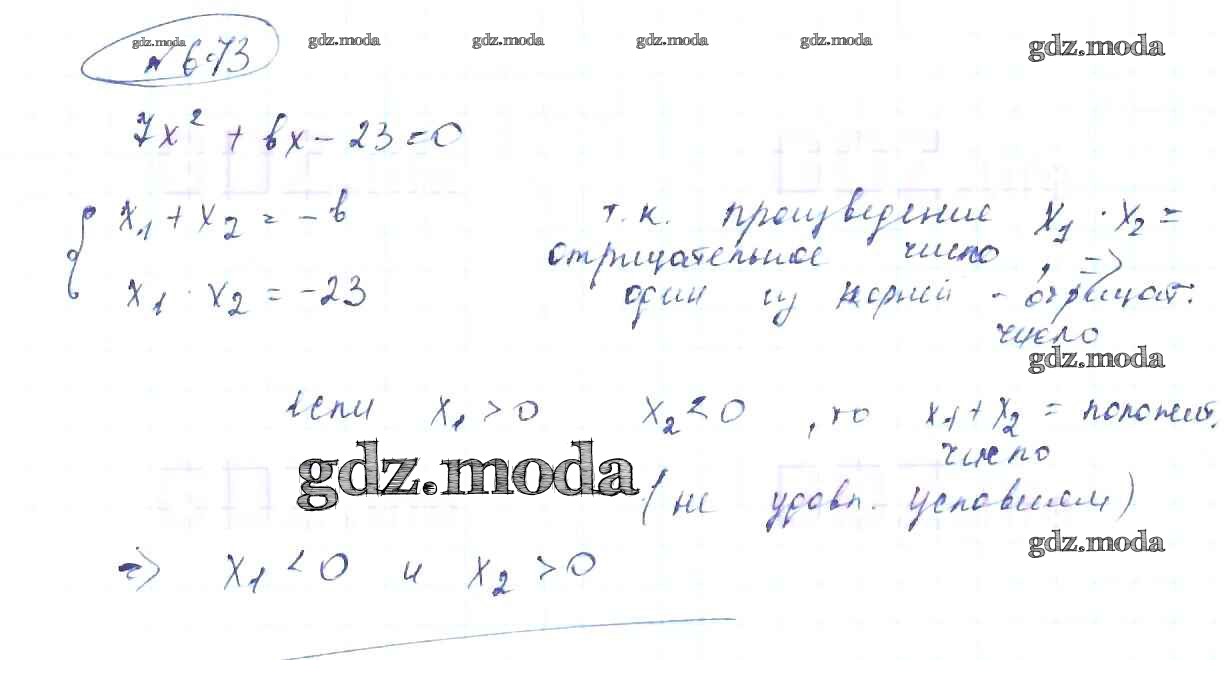 gdz.moda gdz.moda gdz.moda gdz.moda gdz.moda gdz.moda
№ 673
7x² + bx - 23 = 0
x₁ + x₂ = -b
x₁ · x₂ = -23
т.к. произведение x₁ · x₂ =
отрицательное число, =>
один из корней - отрицат.
число
gdz.moda
если x₁ > 0 x₂ < 0, то x₁ + x₂ = положит.
число
gdz.moda
(не удовл. условиям)
gdz.moda
=> x₁ < 0 и x₂ > 0